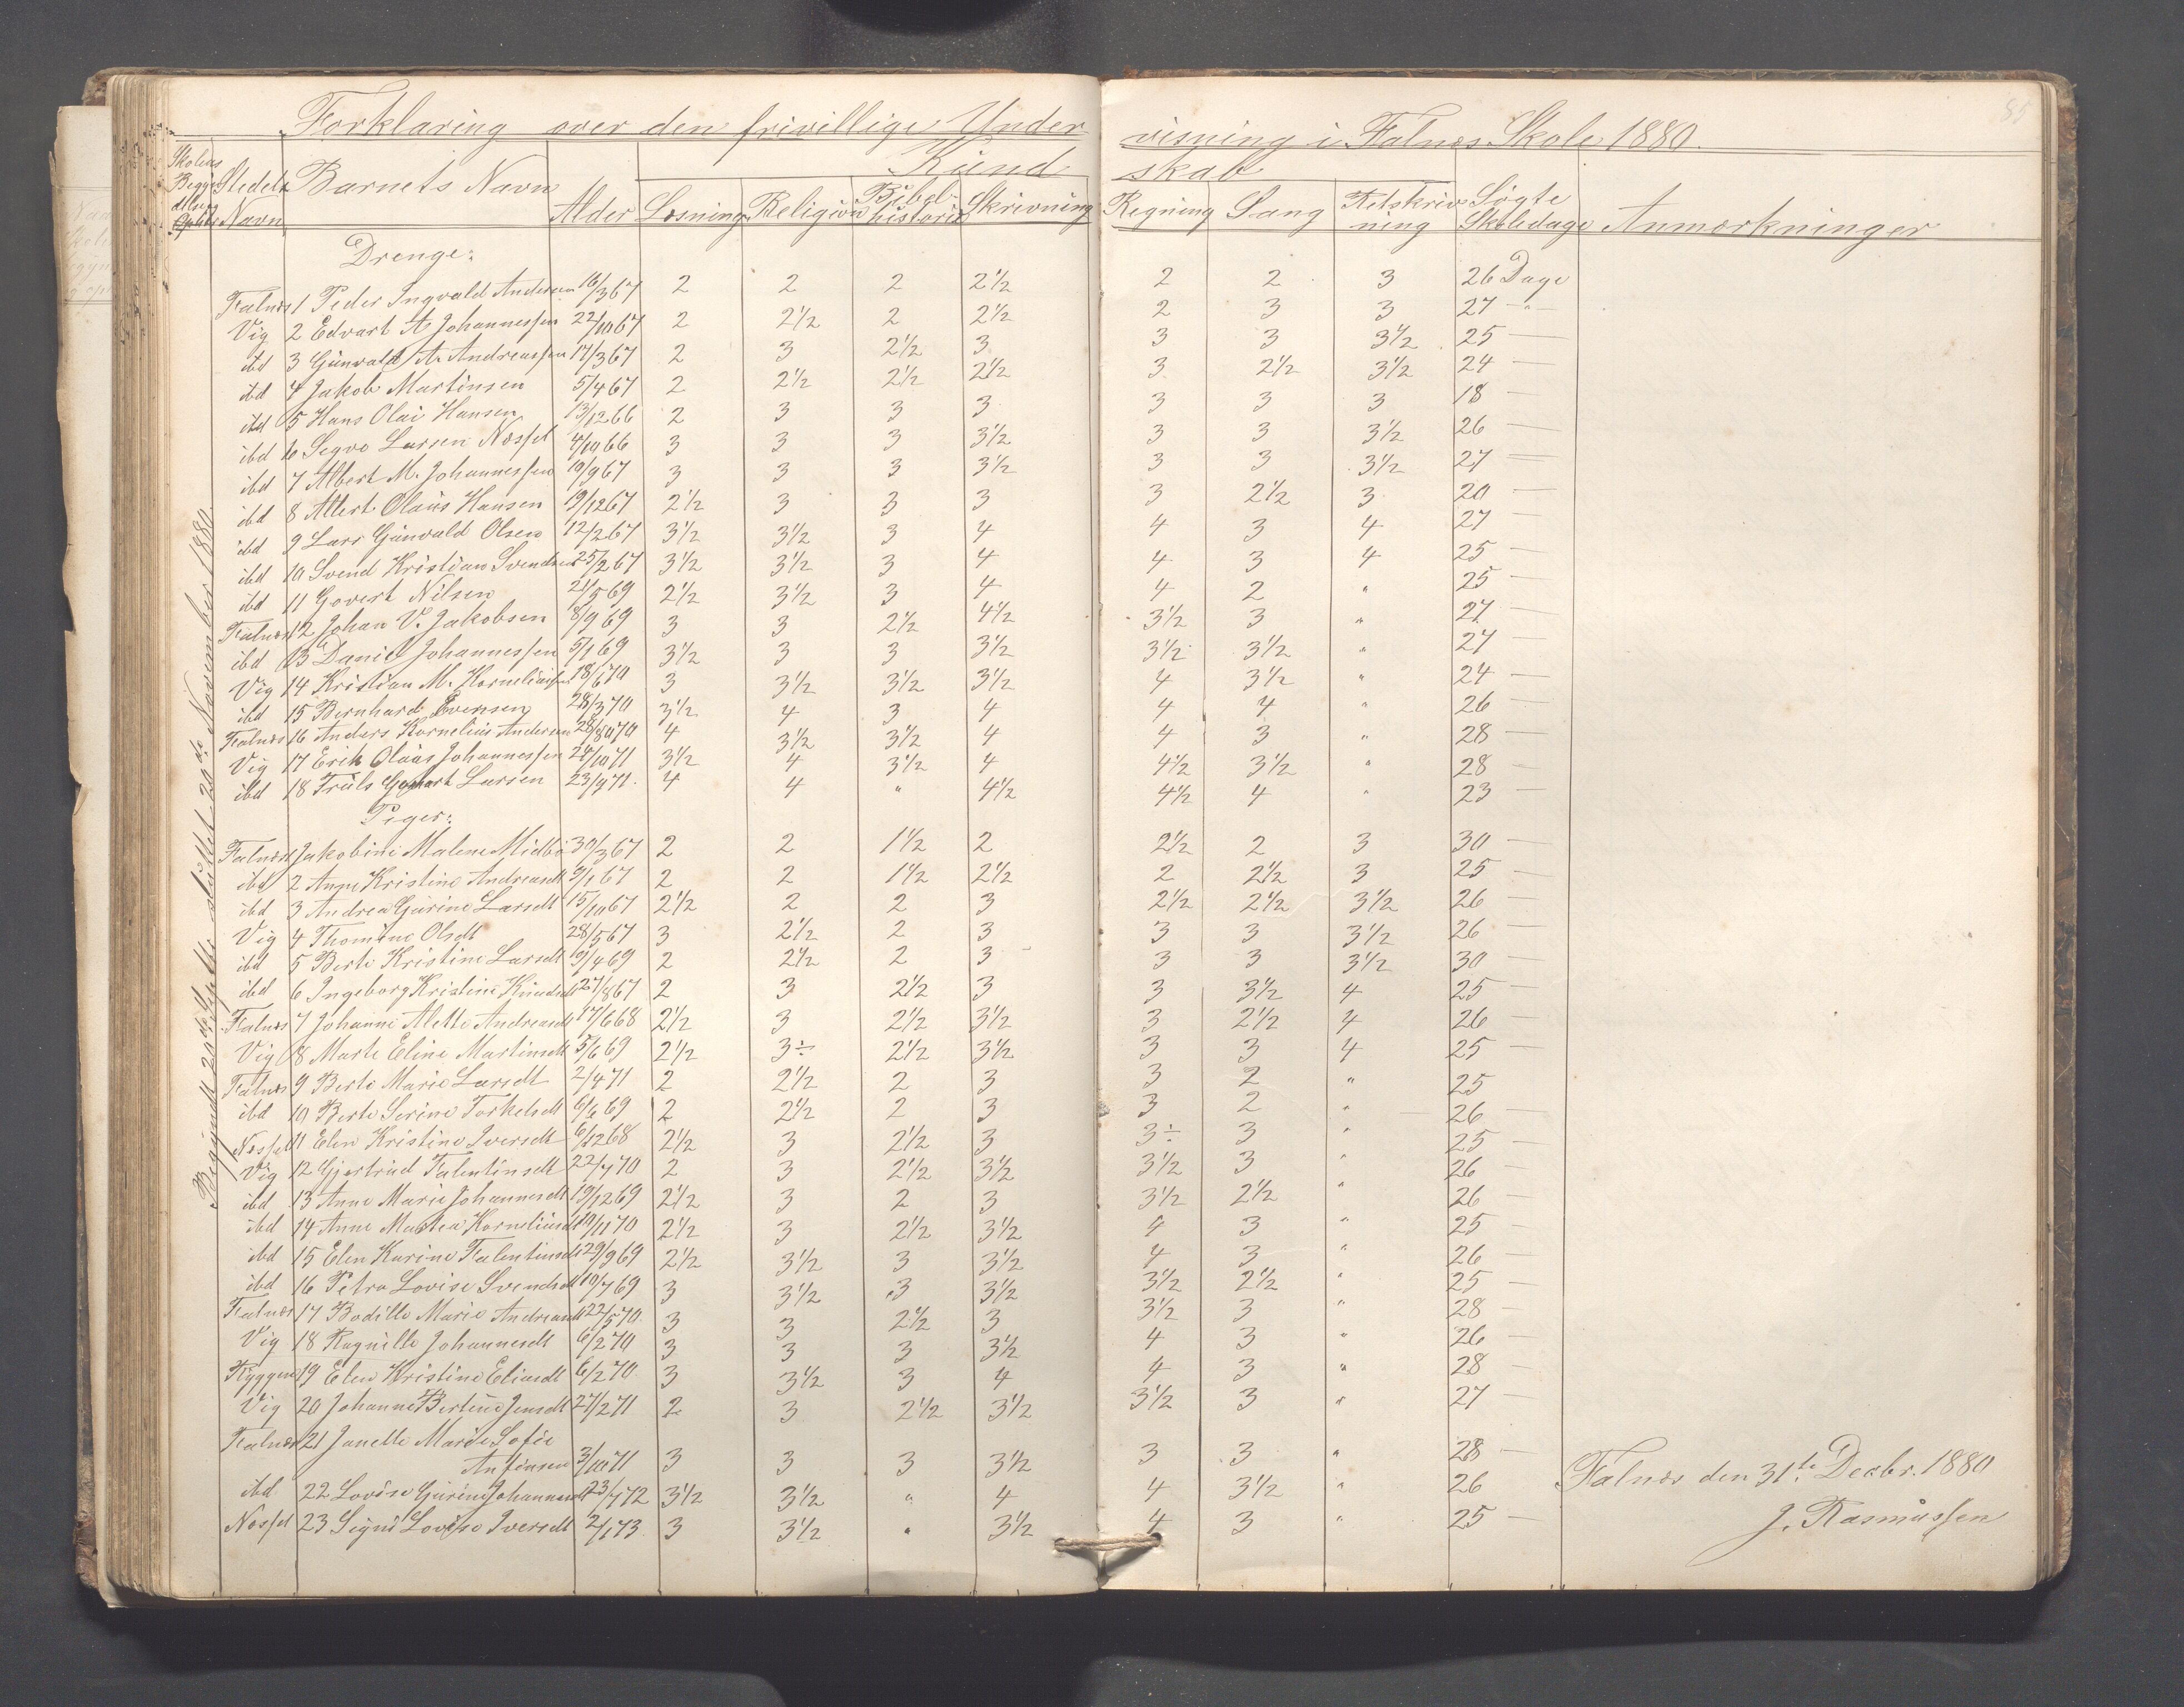 85
Forklaring over den frivillige Undervisning i Falnes Skole 1880.
Skolens Begyndelse og Ophør | Stedets Navn | Barnets Navn | Alder | Kundskab: Læsning | Religion | Bibelhistorie | Skrivning | Regning | Sang | Retskrivning | Søgte Skoledage | Anmærkninger
Begyndt 20de Septbr sluttet 20de November 1880.
Drenge:
Falnes 1 Peder Ingvald Andersen 16/3 67 2 2 2 2 1/2 2 2 3 26 Dage
Vig 2 Edvart A Johannessen 22/10 67 2 2 1/2 2 2 1/2 2 3 3 27 — " —
ibd 3 Gunvald A. Andreassen 17/3 67 2 3 2 1/2 3 3 3 3 1/2 25 —
ibd 4 Jakob Martinsen 5/4 67 2 2 1/2 2 1/2 2 1/2 3 2 1/2 3 1/2 24 —
ibd 5 Hans Olai Hansen 13/12 66 2 3 3 3 3 3 3 18 —
ibd 6 Segvo Larsen Næsset 4/10 66 3 3 3 3 1/2 3 3 3 1/2 26 —
ibd 7 Albert M. Johannessen 19/9 67 3 3 3 3 1/2 3 3 3 1/2 27 —
ibd 8 Albert Olaus Hansen 19/12 67 2 1/2 3 3 3 3 2 1/2 3 20 —
ibd 9 Lars Gunvald Olsen 12/2 67 3 1/2 3 1/2 3 4 4 3 4 27 —
ibd 10 Svend Kristian Svendsen 25/2 67 3 1/2 3 1/2 3 4 4 3 4 25 —
ibd 11 Govert Nilsen 21/5 69 2 1/2 3 1/2 3 4 4 2 " 25 —
Falnes 12 Johan V. Jakobsen 8/9 69 3 3 2 1/2 4 1/2 3 1/2 3 " 27 —
ibd 13 Daniel Johannessen 5/1 69 3 1/2 3 3 3 1/2 3 1/2 3 1/2 " 27 —
Vig 14 Kristian M. Korneliussen 18/6 70 3 3 1/2 3 1/2 3 1/2 4 3 1/2 " 24 —
ibd 15 Bernhard Iversen 28/3 70 3 1/2 4 3 4 4 4 " 26 —
Falnes 16 Anders Kornelius Andersen 28/8 70 4 3 1/2 3 1/2 4 4 3 " 28 —
Vig 17 Erik Olaus Johannessen 24/10 71 3 1/2 4 3 1/2 4 4 1/2 3 1/2 " 28 —
ibd 18 Truls Govert Larsen 23/9 71. 4 4 " 4 1/2 4 1/2 4 " 23 —
Piger:
Falnes 1 Jakobine Malene Midbø 30/3 67 2 2 1 1/2 2 2 1/2 2 3 30 —
ibd 2 Anne Kristine Andreasdt 9/1 67 2 2 1 1/2 2 1/2 2 2 1/2 3 25 —
ibd 3 Andrea Gurine Larsdt 15/10 67 2 1/2 2 2 3 2 1/2 2 1/2 3 1/2 26 —
Vig 4 Thomine Olsdt 28/5 67 3 2 1/2 2 3 3 3 3 1/2 26 —
ibd 5 Berte Kristine Larsdt 19/4 69 2 2 1/2 2 3 3 3 3 1/2 30 —
ibd 6 Ingeborg Kristine Knudsdt 27/8 67 2 3 2 1/2 3 3 3 1/2 4 25 —
Falnes 7 Johanne Alette Andreasdt 17/6 68 2 1/2 3 2 1/2 3 1/2 3 2 1/2 4 26 —
Vig 8 Marte Eline Martinsdt 5/6 69 2 1/2 3÷ 2 1/2 3 1/2 3 3 4 25 —
Falnes 9 Berte Marie Larsdt 2/4 71 2 2 1/2 2 3 3 2 " 25
ibd 10 Berte Serine Torkelsdt 6/6 69 2 2 1/2 2 3 3 2 " 26 —
Næsset 11 Elen Kristine Iversdt 6/12 68 2 1/2 3 2 1/2 3 3÷ 3 " 25 —
Vig 12 Gjertrud Falentinsdt 22/7 70 2 3 2 1/2 3 1/2 3 1/2 3 " 26 —
ibd 13 Anne Marie Johannesdt 19/12 69 2 1/2 3 2 3 3 1/2 2 1/2 " 26 —
ibd 14 Anne Martea Korneliusdt 19/11 70 2 1/2 3 2 1/2 3 1/2 4 3 " 25 —
ibd 15 Elen Karine Falentinsdt 29/9 69 2 1/2 3 1/2 3 3 1/2 4 3 " 26 —
ibd 16 Petra Lovise Svendsdt 19/7 69 3 3 1/2 3 3 1/2 3 1/2 2 1/2 " 25 —
Falnes 17 Bodille Marie Andreasdt 22/5 70. 3 3 2 1/2 3 3 1/2 3 " 28 —
Vig 18 Ragnille Johannesdt 6/2 70 3 3 3 3 1/2 4 3 " 26 —
Ryggen 19 Elen Kristine Eliasdt 6/2 70 3 3 1/2 3 4 4 3 " 28 —
Vig 20 Johanne Bertine Jensdt 27/2 71 2 3 2 1/2 3 1/2 3 1/2 3 " 27 —
Falnes 21 Janette Marie Sofie
Anfinsen 3/10 71 3 3 3 3 1/2 3 3 " 28 —
ibd 22 Lovise Gurine Johannesdt 23/7 72 3 1/2 3 1/2 " 4 4 3 1/2 " 26
Næsset 23 Signe Lovise Iversdt 2/1 73. 3 3 1/2 " 3 1/2 4 3 " 25 —
Falnes den 31te Decbr. 1880
J. Rasmussen